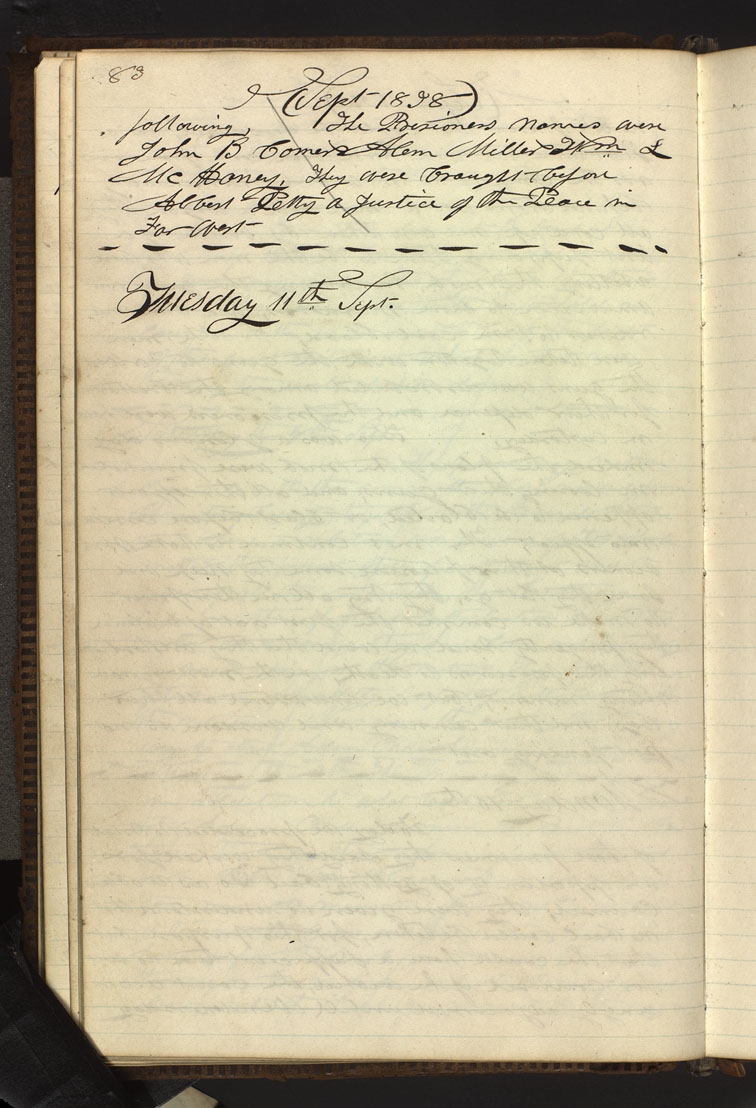 83
(Sept 1838)
following, The Prisoners names were
John B Comer Allen Miller & Wm L
Mc Honey, They were brought before
Albert Petty a Justice of the Peace in
Far West
Tuesday 11th Sept.